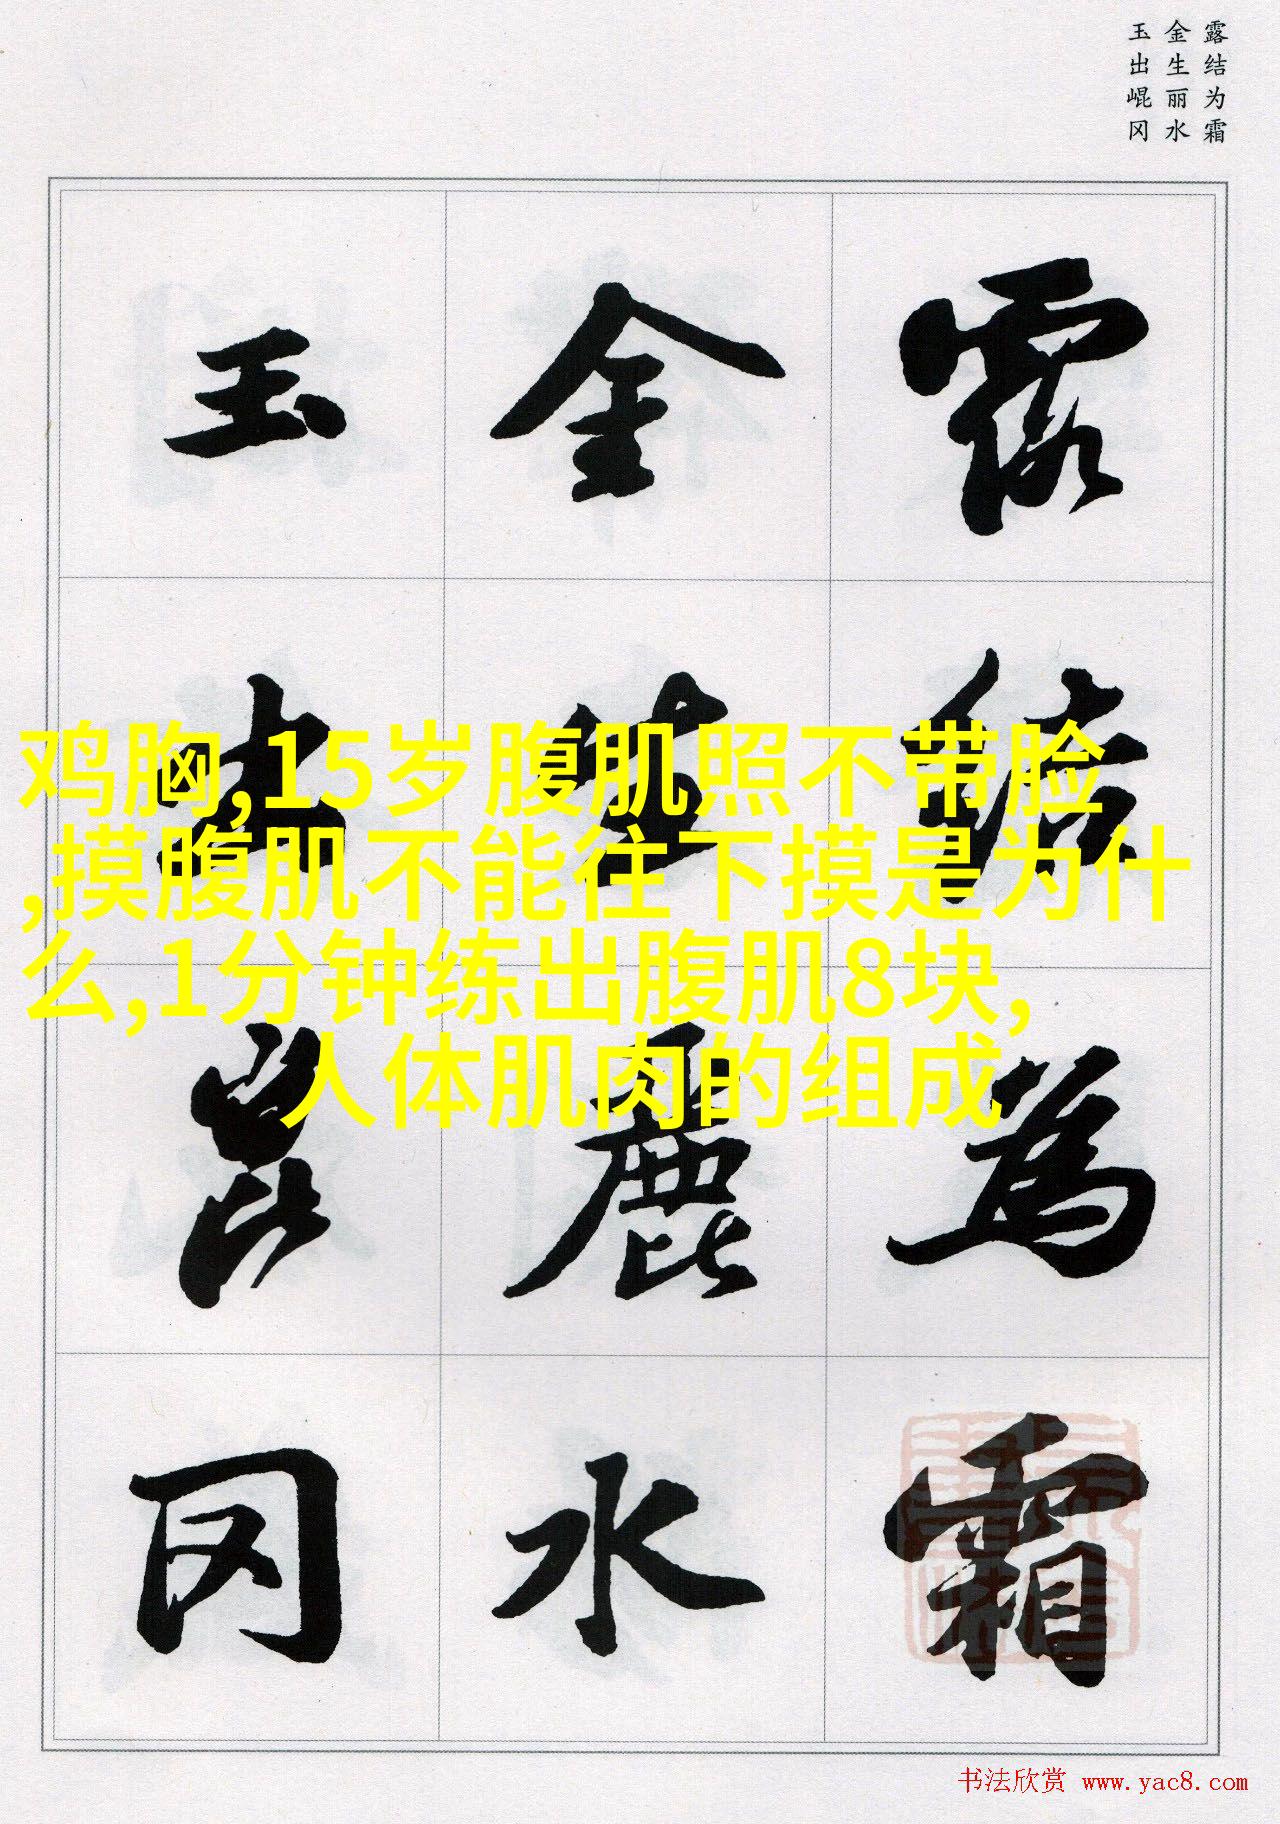 露结为霜
金生丽水
玉出崐冈
露結為霜
金生麗水
玉出崑冈
鸡胸,15岁腹肌照不带脸
,摸腹肌不能往下摸是为什
么,1分钟练出腹肌8块,
人体肌肉的组成
书法欣赏 www.yac8.com